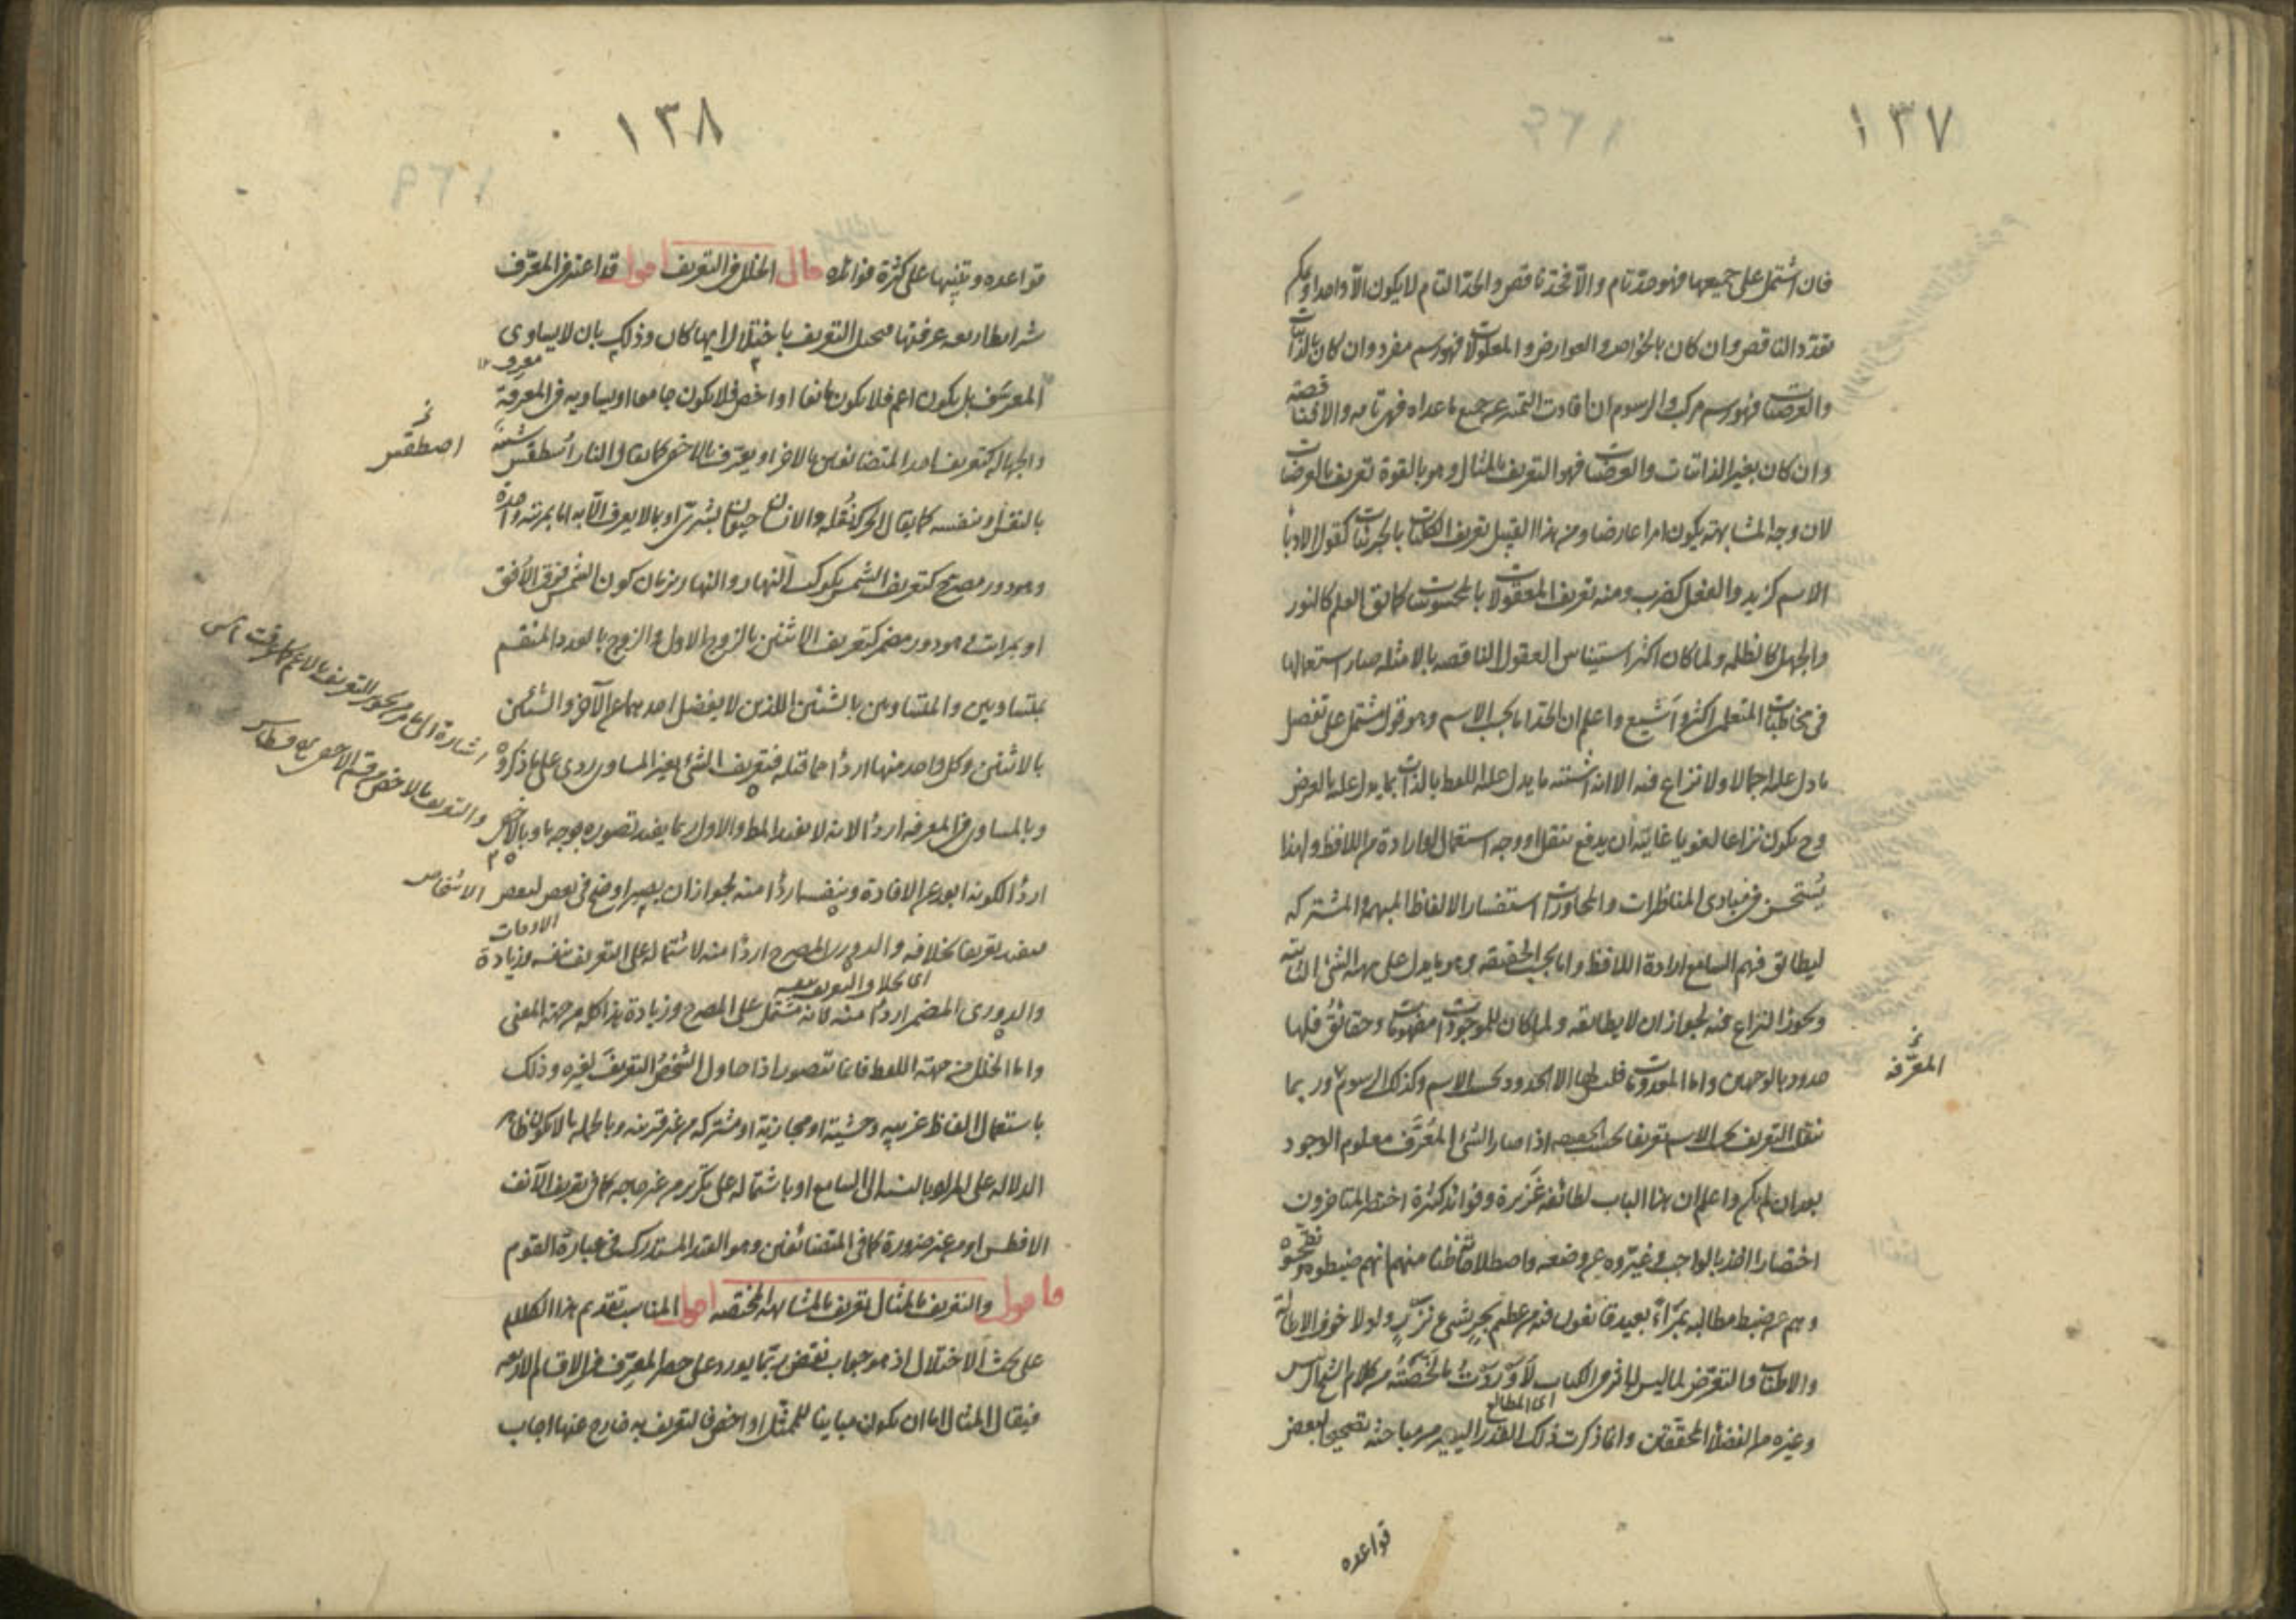 ١٣٧
فان اشتمل على جميعها فهو حد تام والا فحد ناقص والحد التام لا يكون الا واحدا ويمكن
تعدد الناقص وان كان بالخواص والعوارض والمعلولات فهو رسم مفرد وان كان بالذاتيات
والعرضيات فهو رسم مركب والرسوم ان افادت التميز عن جميع ما عداه فهي تامه والا فناقصة
وان كان بغير الذاتيات والعرضيات فهو التعريف بالمثال وهو بالقوة تعريف بالعرضيات
لان وجه المشابهة يكون امرا عارضا ومن هذا القبيل تعريف الكليات بالجزئيات كقول الادباء
الاسم كزيد والفعل كضرب ومنه تعريف المعقولات بالمحسوسات كما يق العلم كالنور
والجهل كالظلمه ولما كان اكثر استيناس العقول الناقصه بالامثله صار استعمالها
في مخاطبات المتعلم اكثر واشيع واعلم ان الحد اما بحسب الاسم وهو قول مشتمل على تفصيل
ما دل عليه اجمالا ولا نزاع فيه الا ان اشتبه ما يدل عليه اللفظ بالذات بما يدل عليه بالعرض
وح يكون نزاعا لغويا غايته ان يدفع بنقل او وجه استعمال او ارادة من اللافظ ولهذا
يستحسن في مبادى المناظرات والمحاورات استفسار الالفاظ المبهمة والمشتركه
ليطابق فهم السامع ارادة اللافظ واما بحسب الحقيقه وهو ما يدل على مهية الشئ الثابتة
ويجوز النزاع فيه لجواز ان لا يطابقه ولما كان للموجودات مفهومات وحقائق فلها
حدود بالوجهين واما المعدومات فليس لها الا الحدود بحسب الاسم وكذلك الرسوم وربما
المعرفه
ينقلب التعريف بحسب الاسم تعريفا بحسب الحقيقه اذا صار الشئ المعرف معلوم الوجود
بعد ان لم يكن واعلم ان هذا الباب لطائفه غزيرة وفوائد كثيرة اختصر المتاخرون
اختصارا اخذ بالواجب وغيروه عن وضعه واصطلاحاته ظنا منهم انهم ضبطوه ونقحوه
وهم عن ضبط مطالبه بمراء بعيد قانعون فيه من عظيم بحر بشئ نزر ولولا خوف الاطالة
والاطناب والتعرض لما ليس في الكتاب لاوردت ما لخصته من كلام الشيخ الرئيس
اى المطالع
وغيره من الفضلاء المحققين وانما ذكرت ذلك القدر اليسير من مباحثه تصحيحا لبعض
قواعده
١٣٨
قواعده وتنبيها على كثرة فوائده قال الخلل في التعريف اقول قد اعتبر في المعرف
شرايط اربعه عرفتها فيختل التعريف باختلال ايها كان وذلك بان لا يساوى
المعرف بل يكون اعم فلا يكون مانعا او اخص فلا يكون جامعا او يساويه في المعرفة
والجهاله كتعريف احد المتضائفين بالاخر او يعرف بالاخفى كما يقال النار اسطقس شبيه
اصطقس
بالنفس او بنفسه كما يقال الحركة نقله والانسان حيوان بشرى او بما لا يعرف الا به اما بمرتبه واحدة
وهو دور مصرح كتعريف الشمس بكوكب النهار والنهار بزمان كون الشمس فوق الافق
او بمراتب وهو دور مضمر كتعريف الاثنين بالزوج الاول والزوج بالعدد المنقسم
بمتساويين والمتساويين بالشيئين اللذين لا يفضل احدهما على الآخر والشيئين
بالاثنين وكل واحد منها اردأ مما قبله فتعريف الشئ بغير المساوى ردى على ما ذكروه
وبالمساوى في المعرفه اردأ لانه لا يفيد المط والاول ربما يفيد تصوره بوجه ما وبالاخفى
اردأ لكونه ابعد عن الافادة وبنفسه اردأ منه لجواز ان يصير اوضح في بعض لبعض الاشخاص
الاوقات
فيفيد تعريفا بخلافه والدورى المصرح اردأ منه لاشتماله على التعريف بنفسه وزيادة
اى بخلاف التعريف بنفسه
والدورى المضمر اردأ منه فانه مشتمل على المصرح وزيادة هذا كله من جهة المعنى
واما الخلل من جهة اللفظ فانما يتصور اذا حاول الشخص التعريف لغيره وذلك
باستعمال الفاظ غريبه وحشية او مجازية او مشتركه من غير قرينه وبالجمله ما لا يكون ظاهر
الدلاله على المراد بالنسبة الى السامع او باشتماله على تكرير من غير حاجه كما في تعريف الآنف
الافطس او من غير ضرورة كما في المتضائفين وهو القدر المستدرك في عبارة القوم
قال والتعريف بالمثال تعريف بالمشابهة المختصه اقول المناسب تقديم هذا الكلام
على بحث الاختلال اذ هو جواب نقض ربما يورد على حصر المعرف في الاقسام الاربعه
فيقال المثال اما ان يكون مباينا للممثل او اخص فالتعريف به خارج عنها اجاب